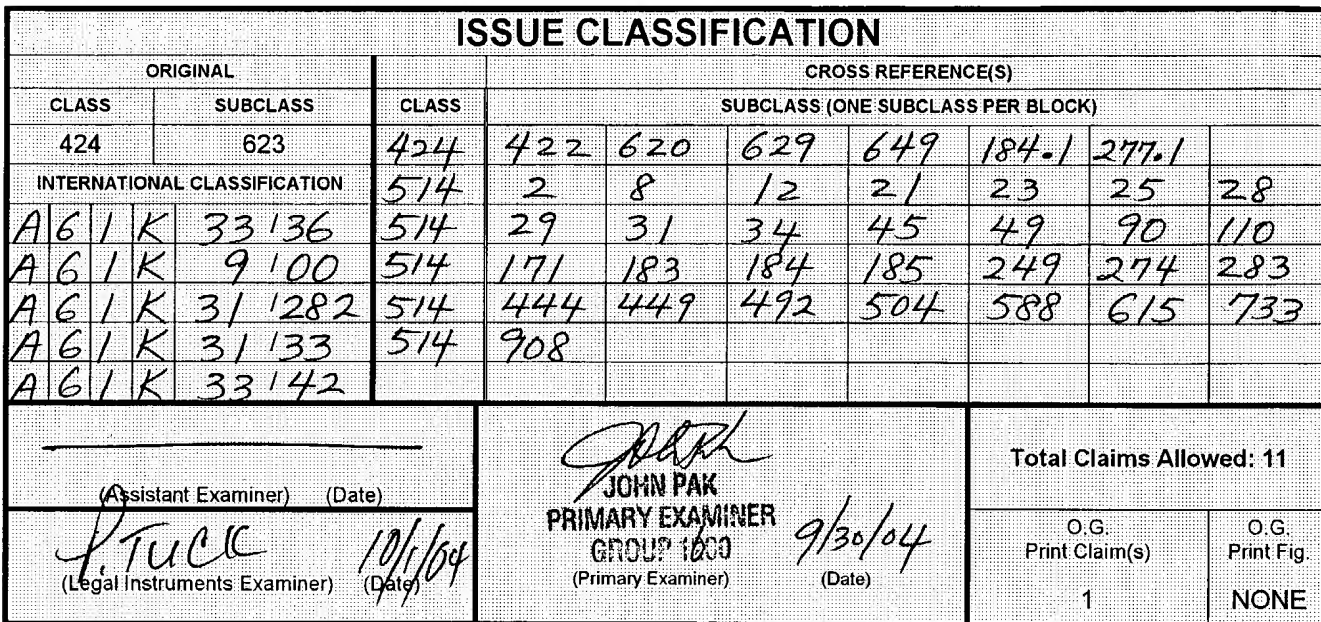 ISSUE CLASSIFICATION
ORIGINAL CROSS REFERENCE(S)
CLASS SUBCLASS CLASS SUBCLASS (ONE SUBCLASS PER BLOCK)
424 623 424 422 620 629 649 184.1 277.1
INTERNATIONAL CLASSIFICATION 514 2 8 12 21 23 25 28
A 6 1 K 33 / 36 514 29 31 34 45 49 90 110
A 6 1 K 9 / 00 514 171 183 184 185 249 274 283
A 6 1 K 31 / 282 514 444 449 492 504 588 615 733
A 6 1 K 31 / 33 514 908
A 6 1 K 33 / 42
(Assistant Examiner) (Date)
P. TUCK 10/1/04
(Legal Instruments Examiner) (Date)
JOHN PAK
PRIMARY EXAMINER
GROUP 1600 9/30/04
(Primary Examiner) (Date)
Total Claims Allowed: 11
O.G. Print Claim(s)
1
O.G. Print Fig.
NONE